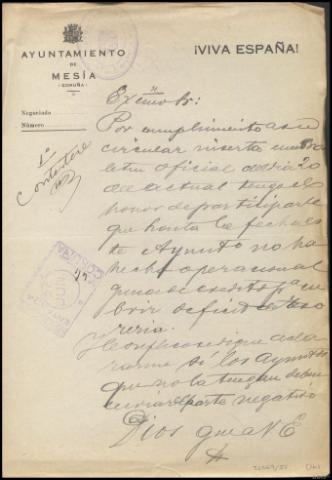 AYUNTAMIENTO
DE
MESÍA
(CORUÑA)
¡VIVA ESPAÑA!
Negociado
Número
Excmo Sr:
Por cumplimiento a su
circular inserta en
letin oficial del dia 20
del actual tengo el
honor de participarle
que hasta la fecha es
te Ayunto no ha
hecho operacion al
guna de credito pa cu
brir deficit de teso
reria.
Le suplico se digne acla
rarme si los Aymtos
que no la tengan deben
enviar el parte negativo
Dios gue a V E